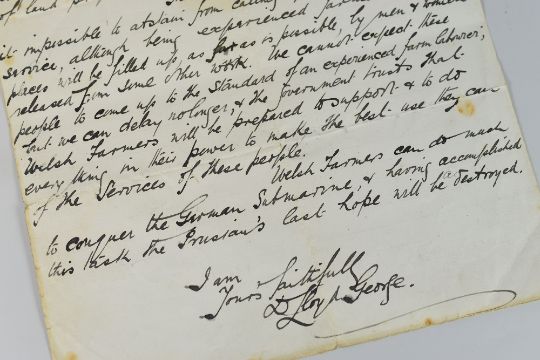 of land
it impossible to abstain from calling
service, although being experienced farm
places will be filled up, as far as is possible, by men & women
released from some other work. We cannot expect these
people to come up to the Standard of an experienced farm labourer;
but we can delay no longer, & the Government trusts that
Welsh Farmers will be prepared to support & to do
every thing in their power to make the best use they can
of the Services of these people.
Welsh Farmers can do much
to conquer the German Submarine, & having accomplished
this task the Prussian's last hope will be destroyed.
I am
Yours faithfully
D Lloyd George.